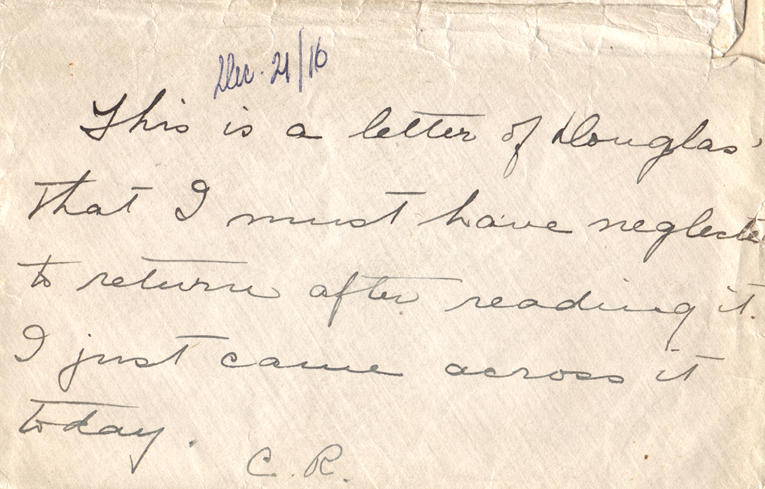 Dec. 21/16
This is a letter of Douglas'
that I must have neglecte
to return after reading it.
I just came across it
today.
C. R.